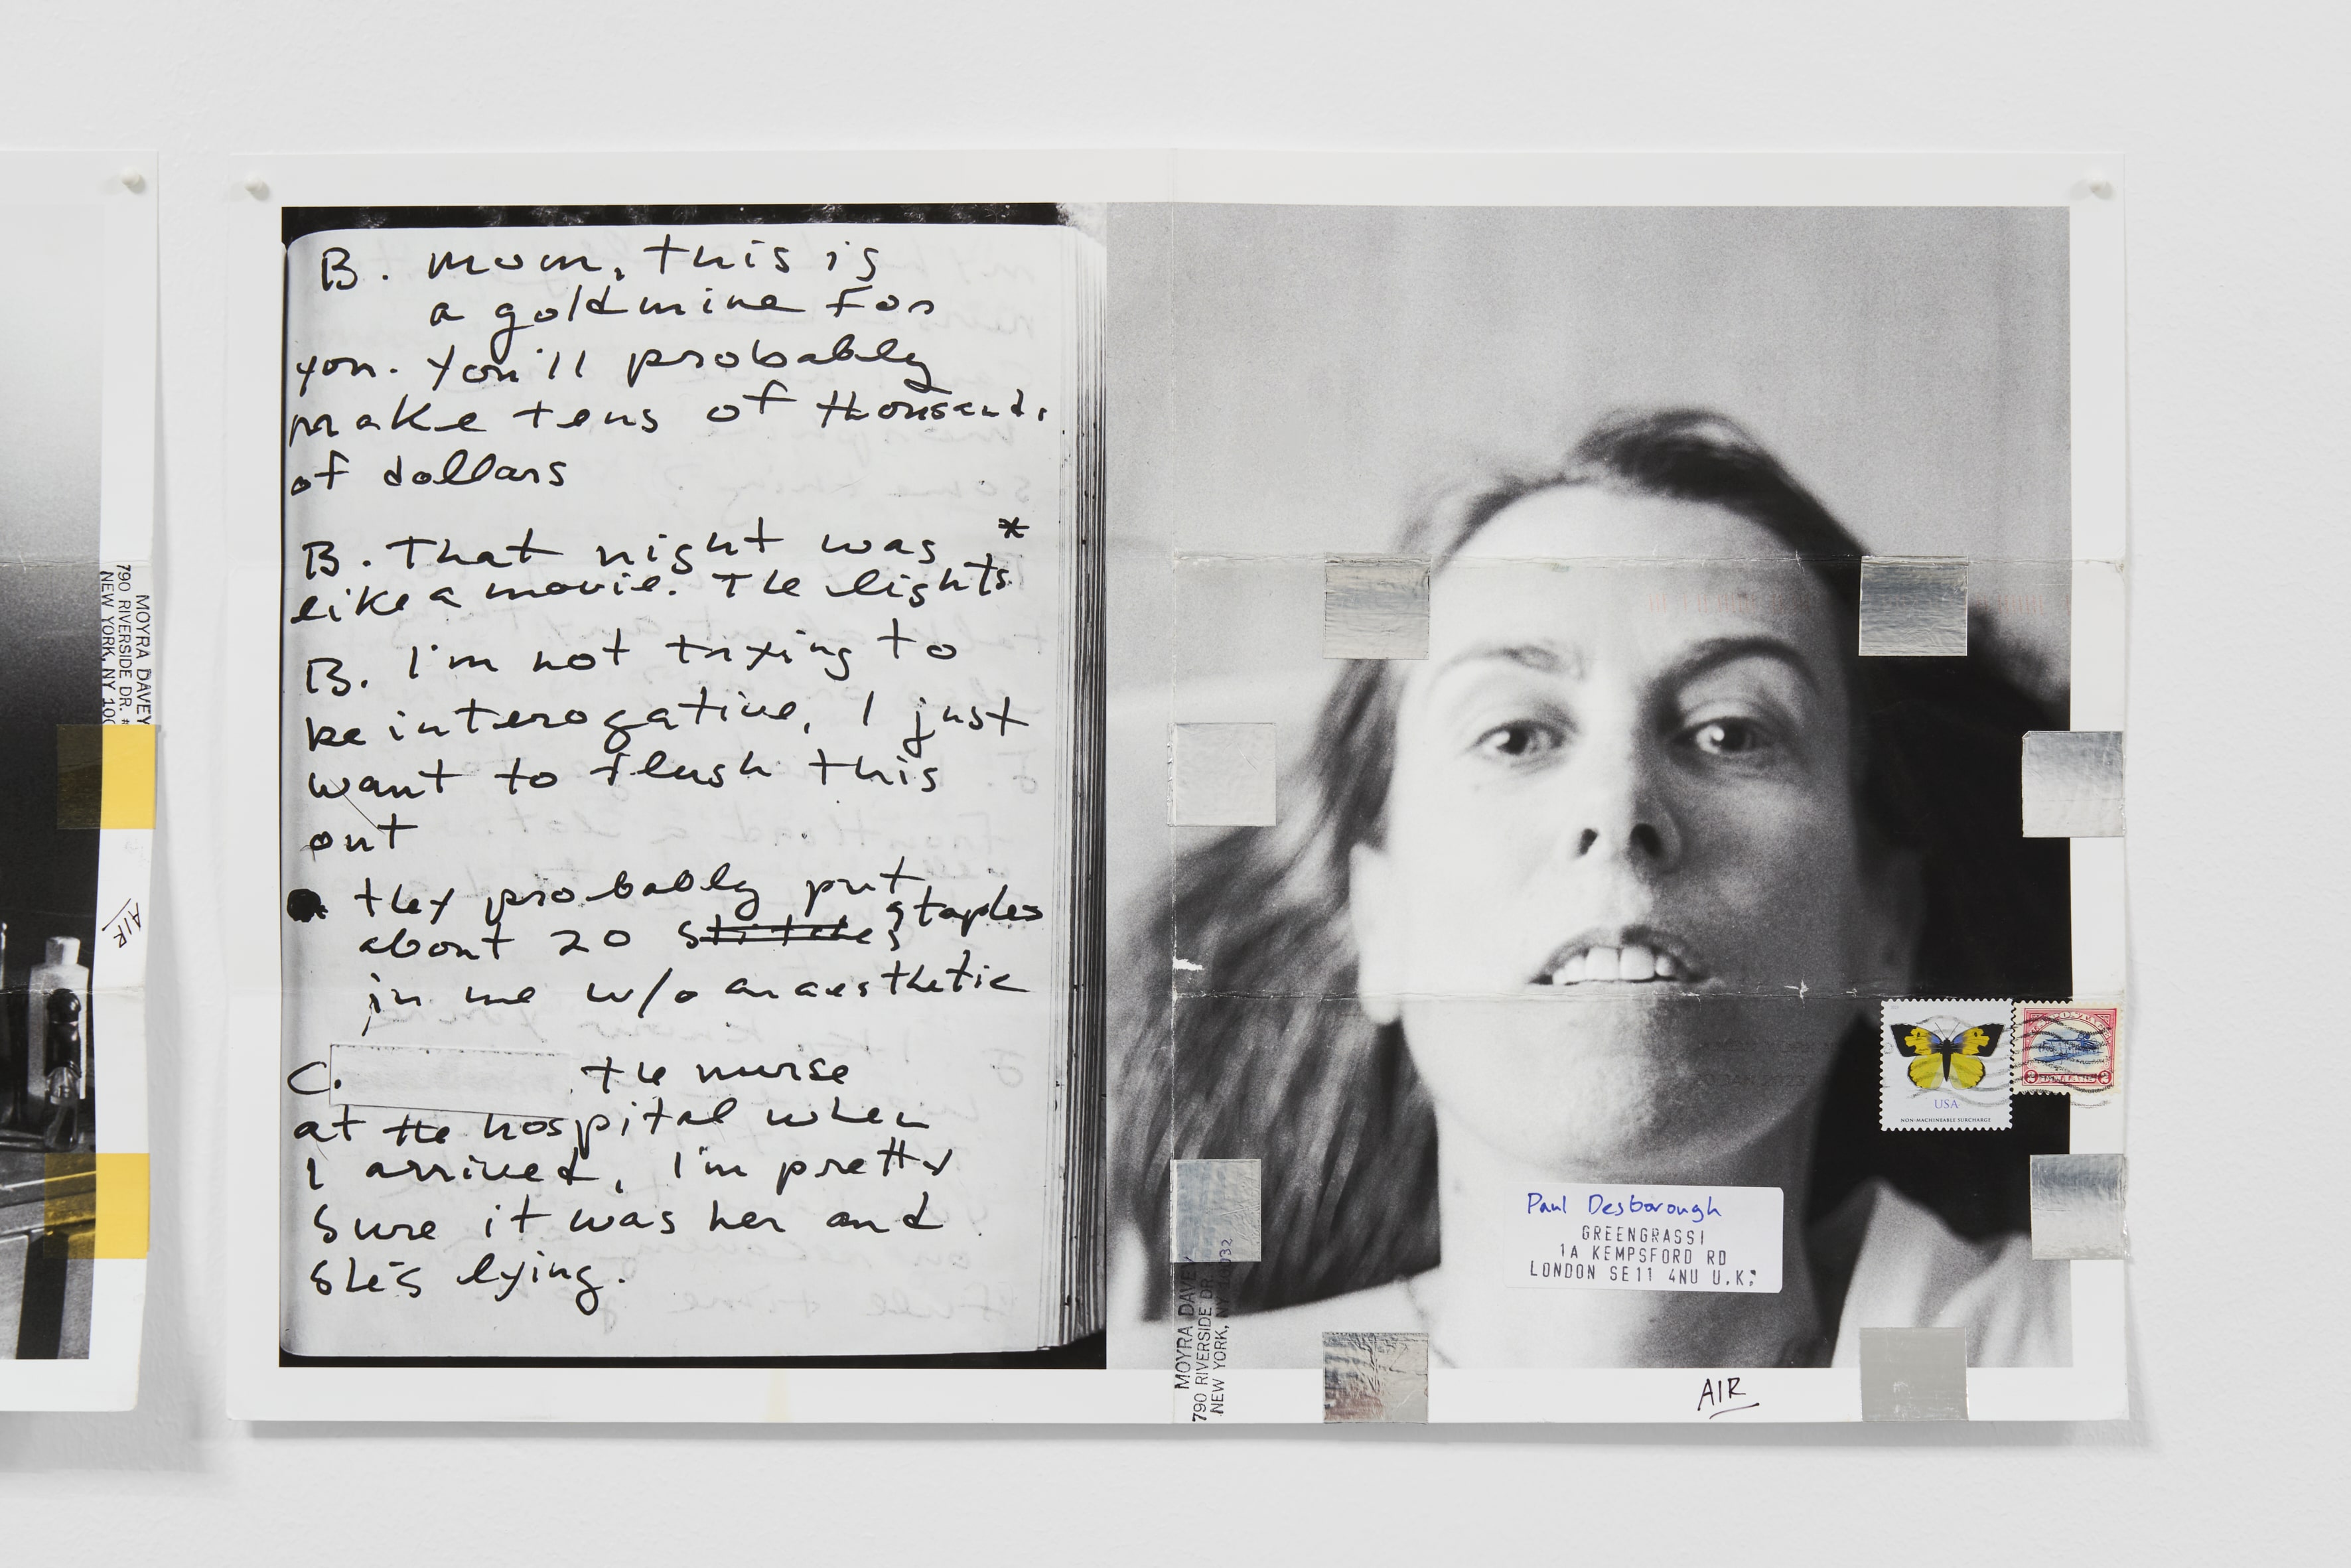 MOYRA DAVEY
790 RIVERSIDE DR.
NEW YORK, NY
AIR
B. Mom, this is
a goldmine for
you. You'll probably
make tens of thousands
of dollars
B. That night was *
like a movie. The lights
B. I'm not trying to
be interogative, I just
want to flush this
out
they probably put
about 20 stitches staples
in me w/o anaesthetic
C. the nurse
at the hospital when
I arrived, I'm pretty
sure it was her and
she's lying.
USA
NON-MACHINEABLE SURCHARGE
Paul Desborough
GREENGRASSI
1A KEMPSFORD RD
LONDON SE11 4NU U.K.
MOYRA DAVEY
790 RIVERSIDE DR.
NEW YORK, NY 10032
AIR